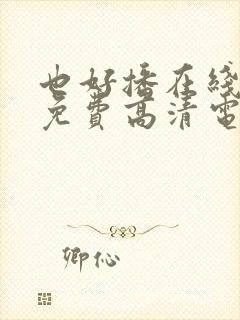 也好播在线
免费高清电
卿伈